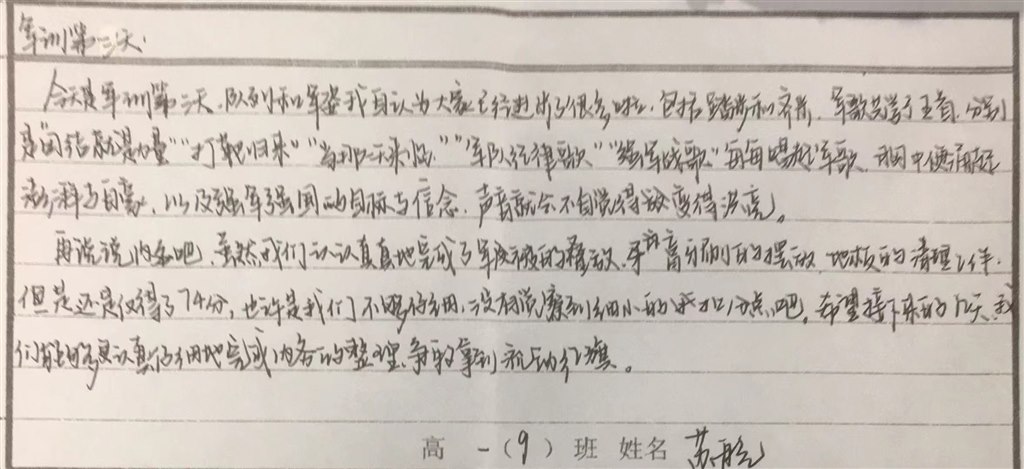 军训第三天
今天是军训第三天,队列和军姿我自认为大家已经进步了很多啦,包括踏步和齐步,军歌共学了五首,分别
是"团结就是力量""打靶归来""当那一天来临""军队纪律歌""强军战歌"每每唱起军歌,中便涌起
澎湃与自豪,以及强军强国的目标与信念,声音就会不自觉得变得洪亮。
再说说内务吧,虽然我们认认真真地完成了军被的叠放,的摆放,地板的清理工作,
但是还是仅得了74分,也许是我们不够仔细,没有觉察到细小的扣分点吧。希望接下来的几天,我
们能够更认真仔细地完成内务的整理,争取拿到流动红旗。
高 一(9)班 姓名 苏